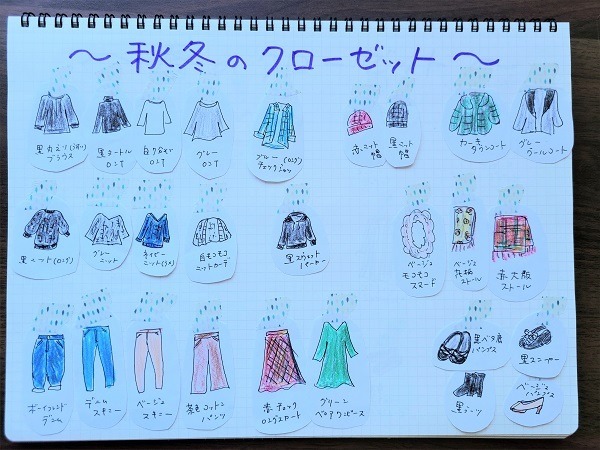 ～秋冬のクローゼット～
黒丸えり( )
ブラウス
黒タートル
ロンT
白
ロンT
グレー
ロンT
ブルー(ロング)
チェックシャツ
赤ニット
帽
黒ニット
帽
カーキ
ダウンコート
グレー
ウールコート
黒ニット(ロング)
グレー
ニット
ネイビー
ニット
白モコモコ
ニットカーデ
黒スウェット
パーカー
ベージュ
モコモコ
スヌード
ベージュ
花柄
ストール
赤大版
ストール
ボーイフレンド
デニム
デニム
スキニー
ベージュ
スキニー
茶色コットン
パンツ
赤チェック
ロングスカート
グリーン
ワンピース
黒ペタ底
パンプス
黒
黒ブーツ
ベージュ
パンプス